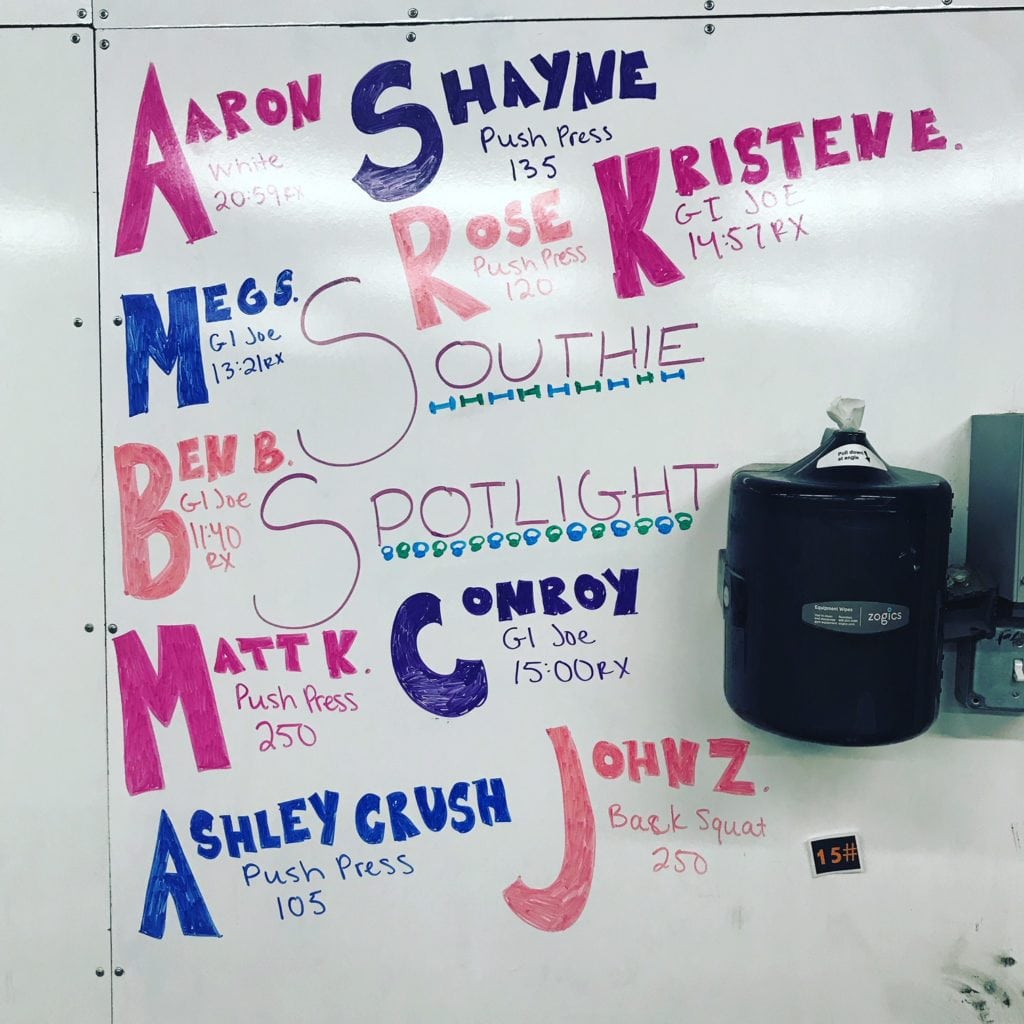 AARON
White
20:59RX
SHAYNE
Push Press
135
KRISTEN E.
GI JOE
14:57RX
ROSE
Push Press
120
MEG S.
GI Joe
13:21RX
SOUTHIE
SPOTLIGHT
BEN B.
GI Joe
11:40
RX
CONROY
GI Joe
15:00RX
MATT K.
Push Press
250
ASHLEY CRUSH
Push Press
105
JOHN Z.
Back Squat
250
Pull down
at angle
Equipment Wipes
zogics
15#